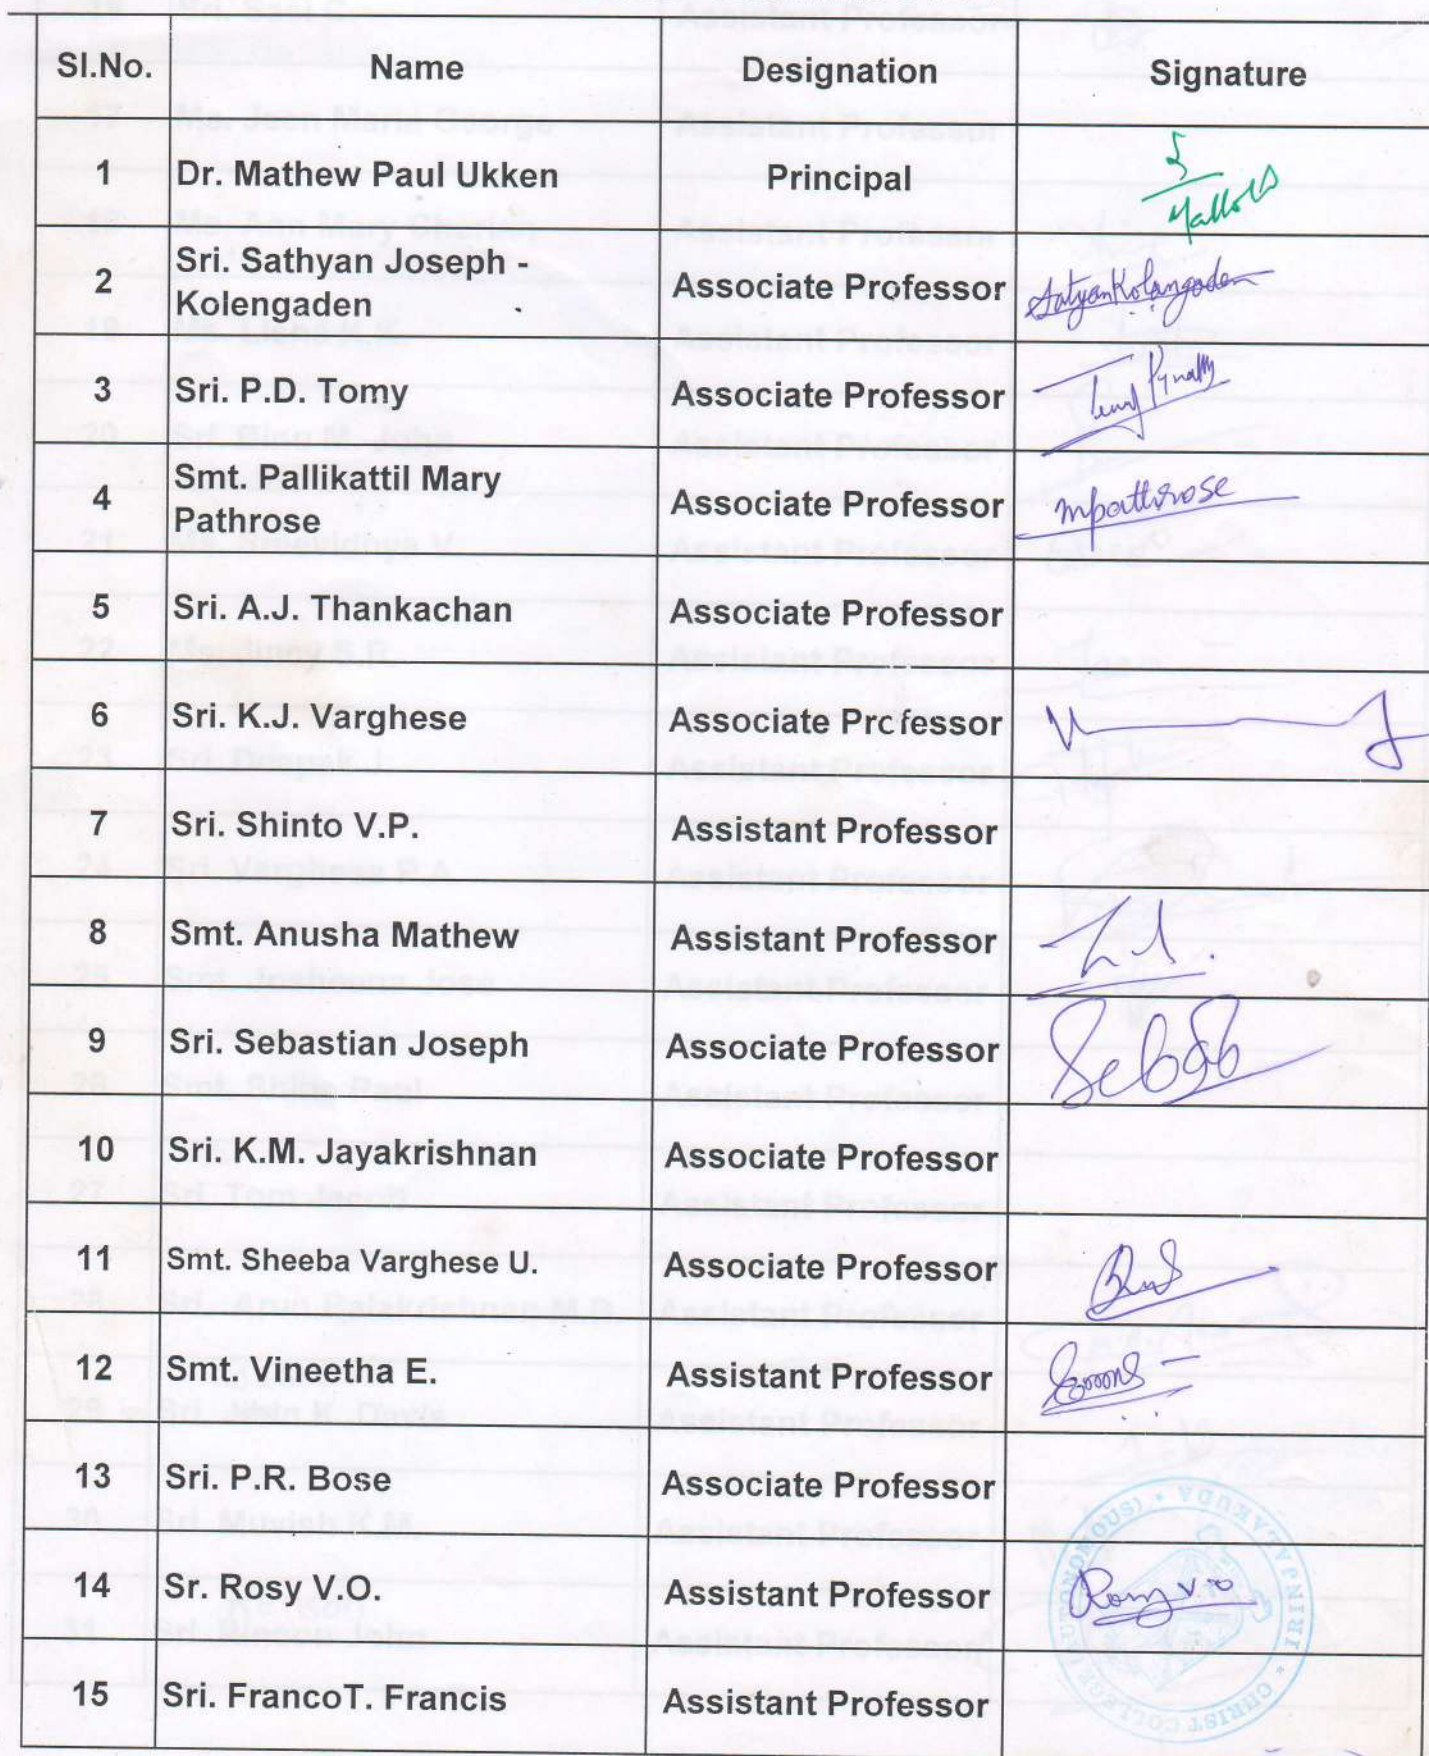 Sl.No. Name Designation Signature
1 Dr. Mathew Paul Ukken Principal
2 Sri. Sathyan Joseph - Kolengaden Associate Professor SatyanKolangaden
3 Sri. P.D. Tomy Associate Professor
4 Smt. Pallikattil Mary Pathrose Associate Professor mpathrose
5 Sri. A.J. Thankachan Associate Professor
6 Sri. K.J. Varghese Associate Professor
7 Sri. Shinto V.P. Assistant Professor
8 Smt. Anusha Mathew Assistant Professor
9 Sri. Sebastian Joseph Associate Professor
10 Sri. K.M. Jayakrishnan Associate Professor
11 Smt. Sheeba Varghese U. Associate Professor
12 Smt. Vineetha E. Assistant Professor
13 Sri. P.R. Bose Associate Professor
14 Sr. Rosy V.O. Assistant Professor Rosy V.O
15 Sri. FrancoT. Francis Assistant Professor
CHRIST COLLEGE (AUTONOMOUS) • IRINJALAKUDA •